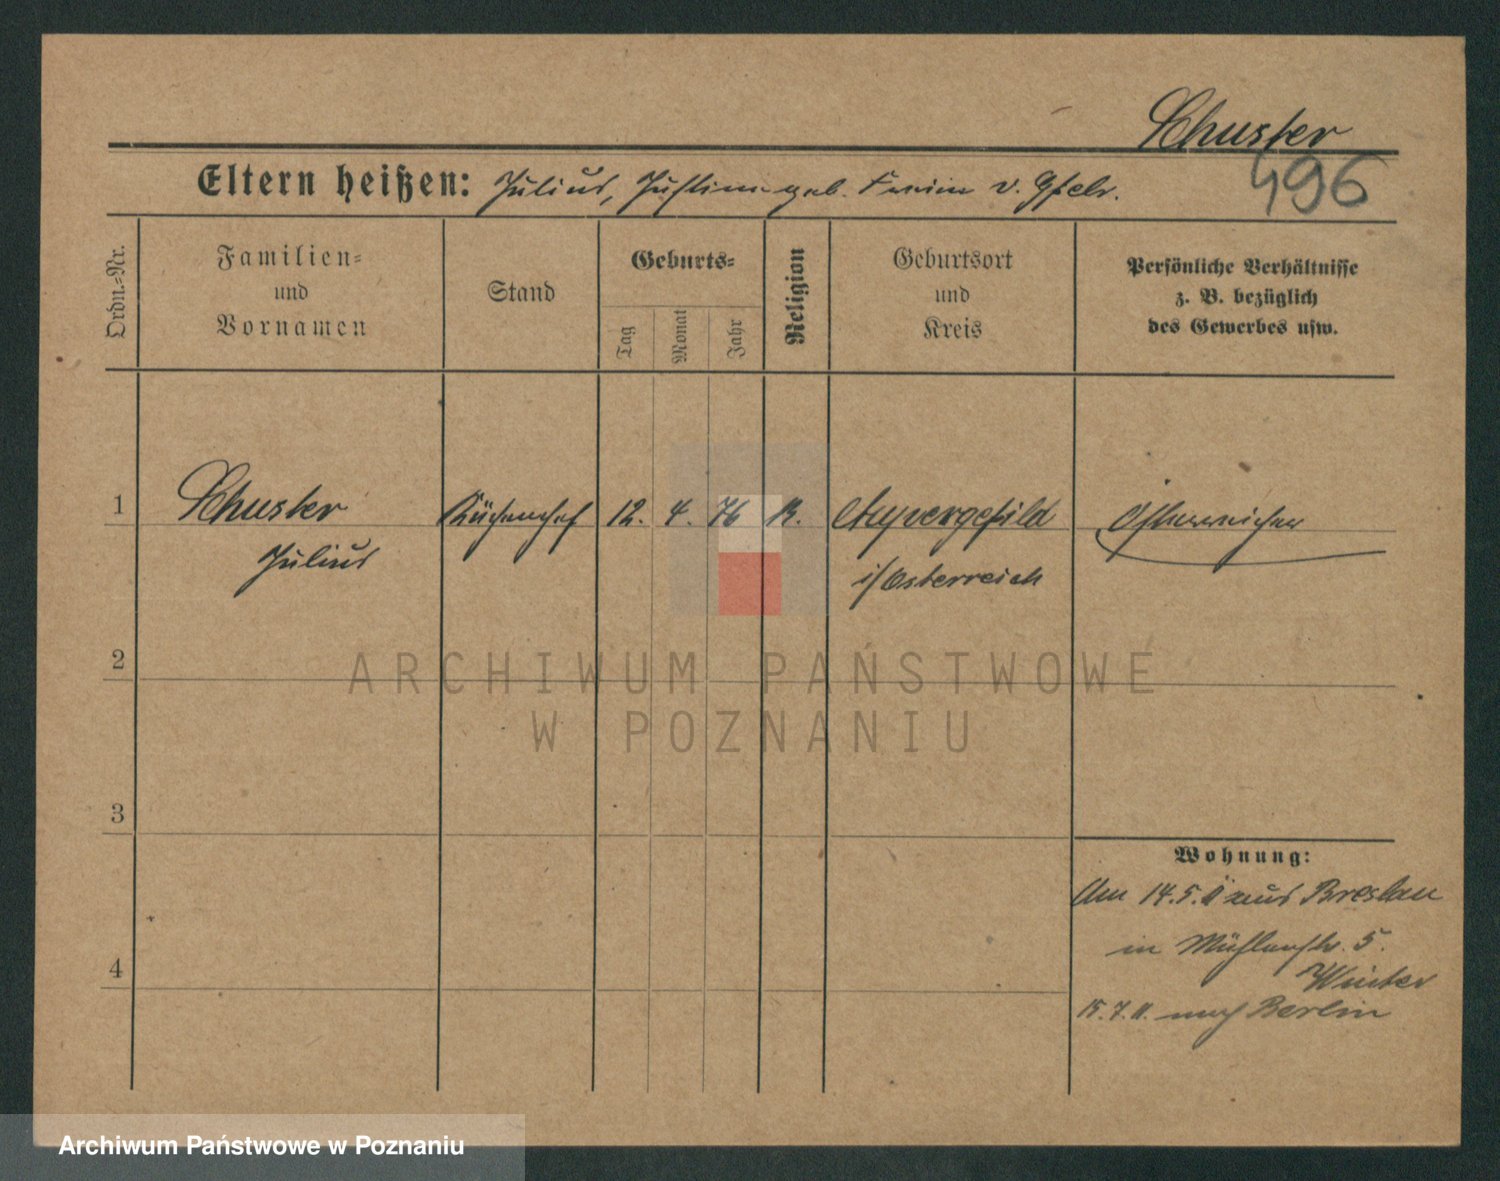 Schuster
496
Eltern heißen: Julius, Justine geb. v.
Ordn.-Nr.
Familien-
und
Vornamen
Stand
Geburts-
Tag
Monat
Jahr
Religion
Geburtsort
und
Kreis
Persönliche Verhältnisse
z. B. bezüglich
des Gewerbes usw.
1
Schuster
Julius
Küchenchef
12. 4. 76
i/Österreich
Österreicher
2
ARCHIWUM PAŃSTWOWE
W POZNANIU
3
4
Wohnung:
Am 14.5.11 aus Breslau
in Mühlenstr. 5.
Winter
15.7.11. nach Berlin
Archiwum Państwowe w Poznaniu